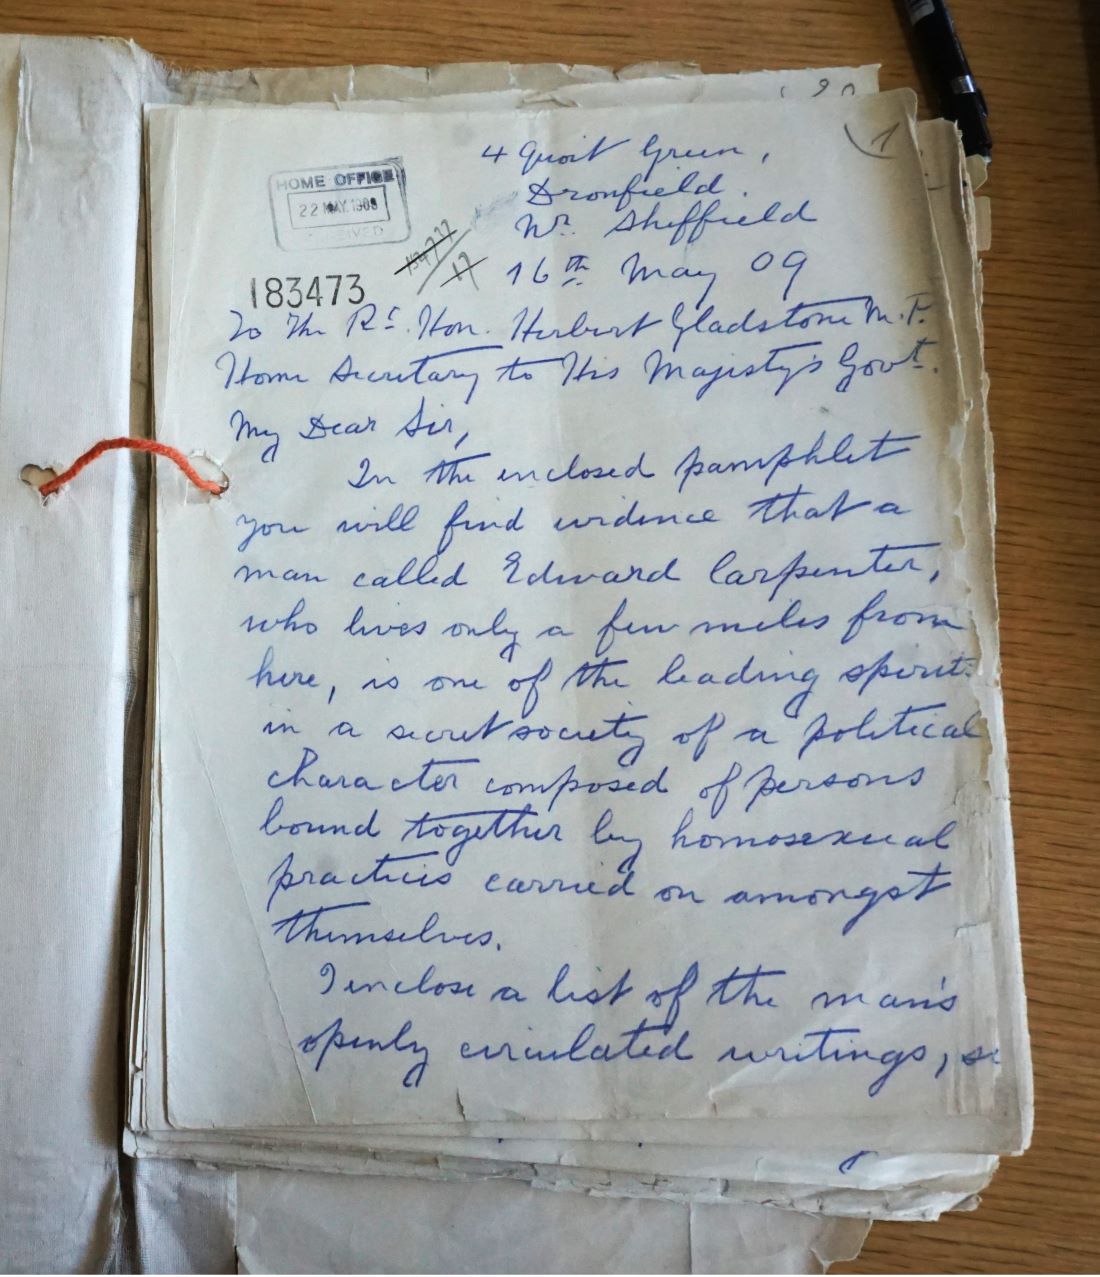 (1
4 Quoit Green,
Dronfield.
Nr. Sheffield
16th May 09
HOME OFFICE
22 MAY. 1909
RECEIVED
183473
To The Rt. Hon. Herbert Gladstone M.P.
Home Secretary to His Majesty's Govt.
My Dear Sir,
In the enclosed pamphlet
you will find evidence that a
man called Edward Carpenter,
who lives only a few miles from
here, is one of the leading spirits
in a secret society of a political
character composed of persons
bound together by homosexual
practices carried on amongst
themselves.
I enclose a list of the man's
openly circulated writings,